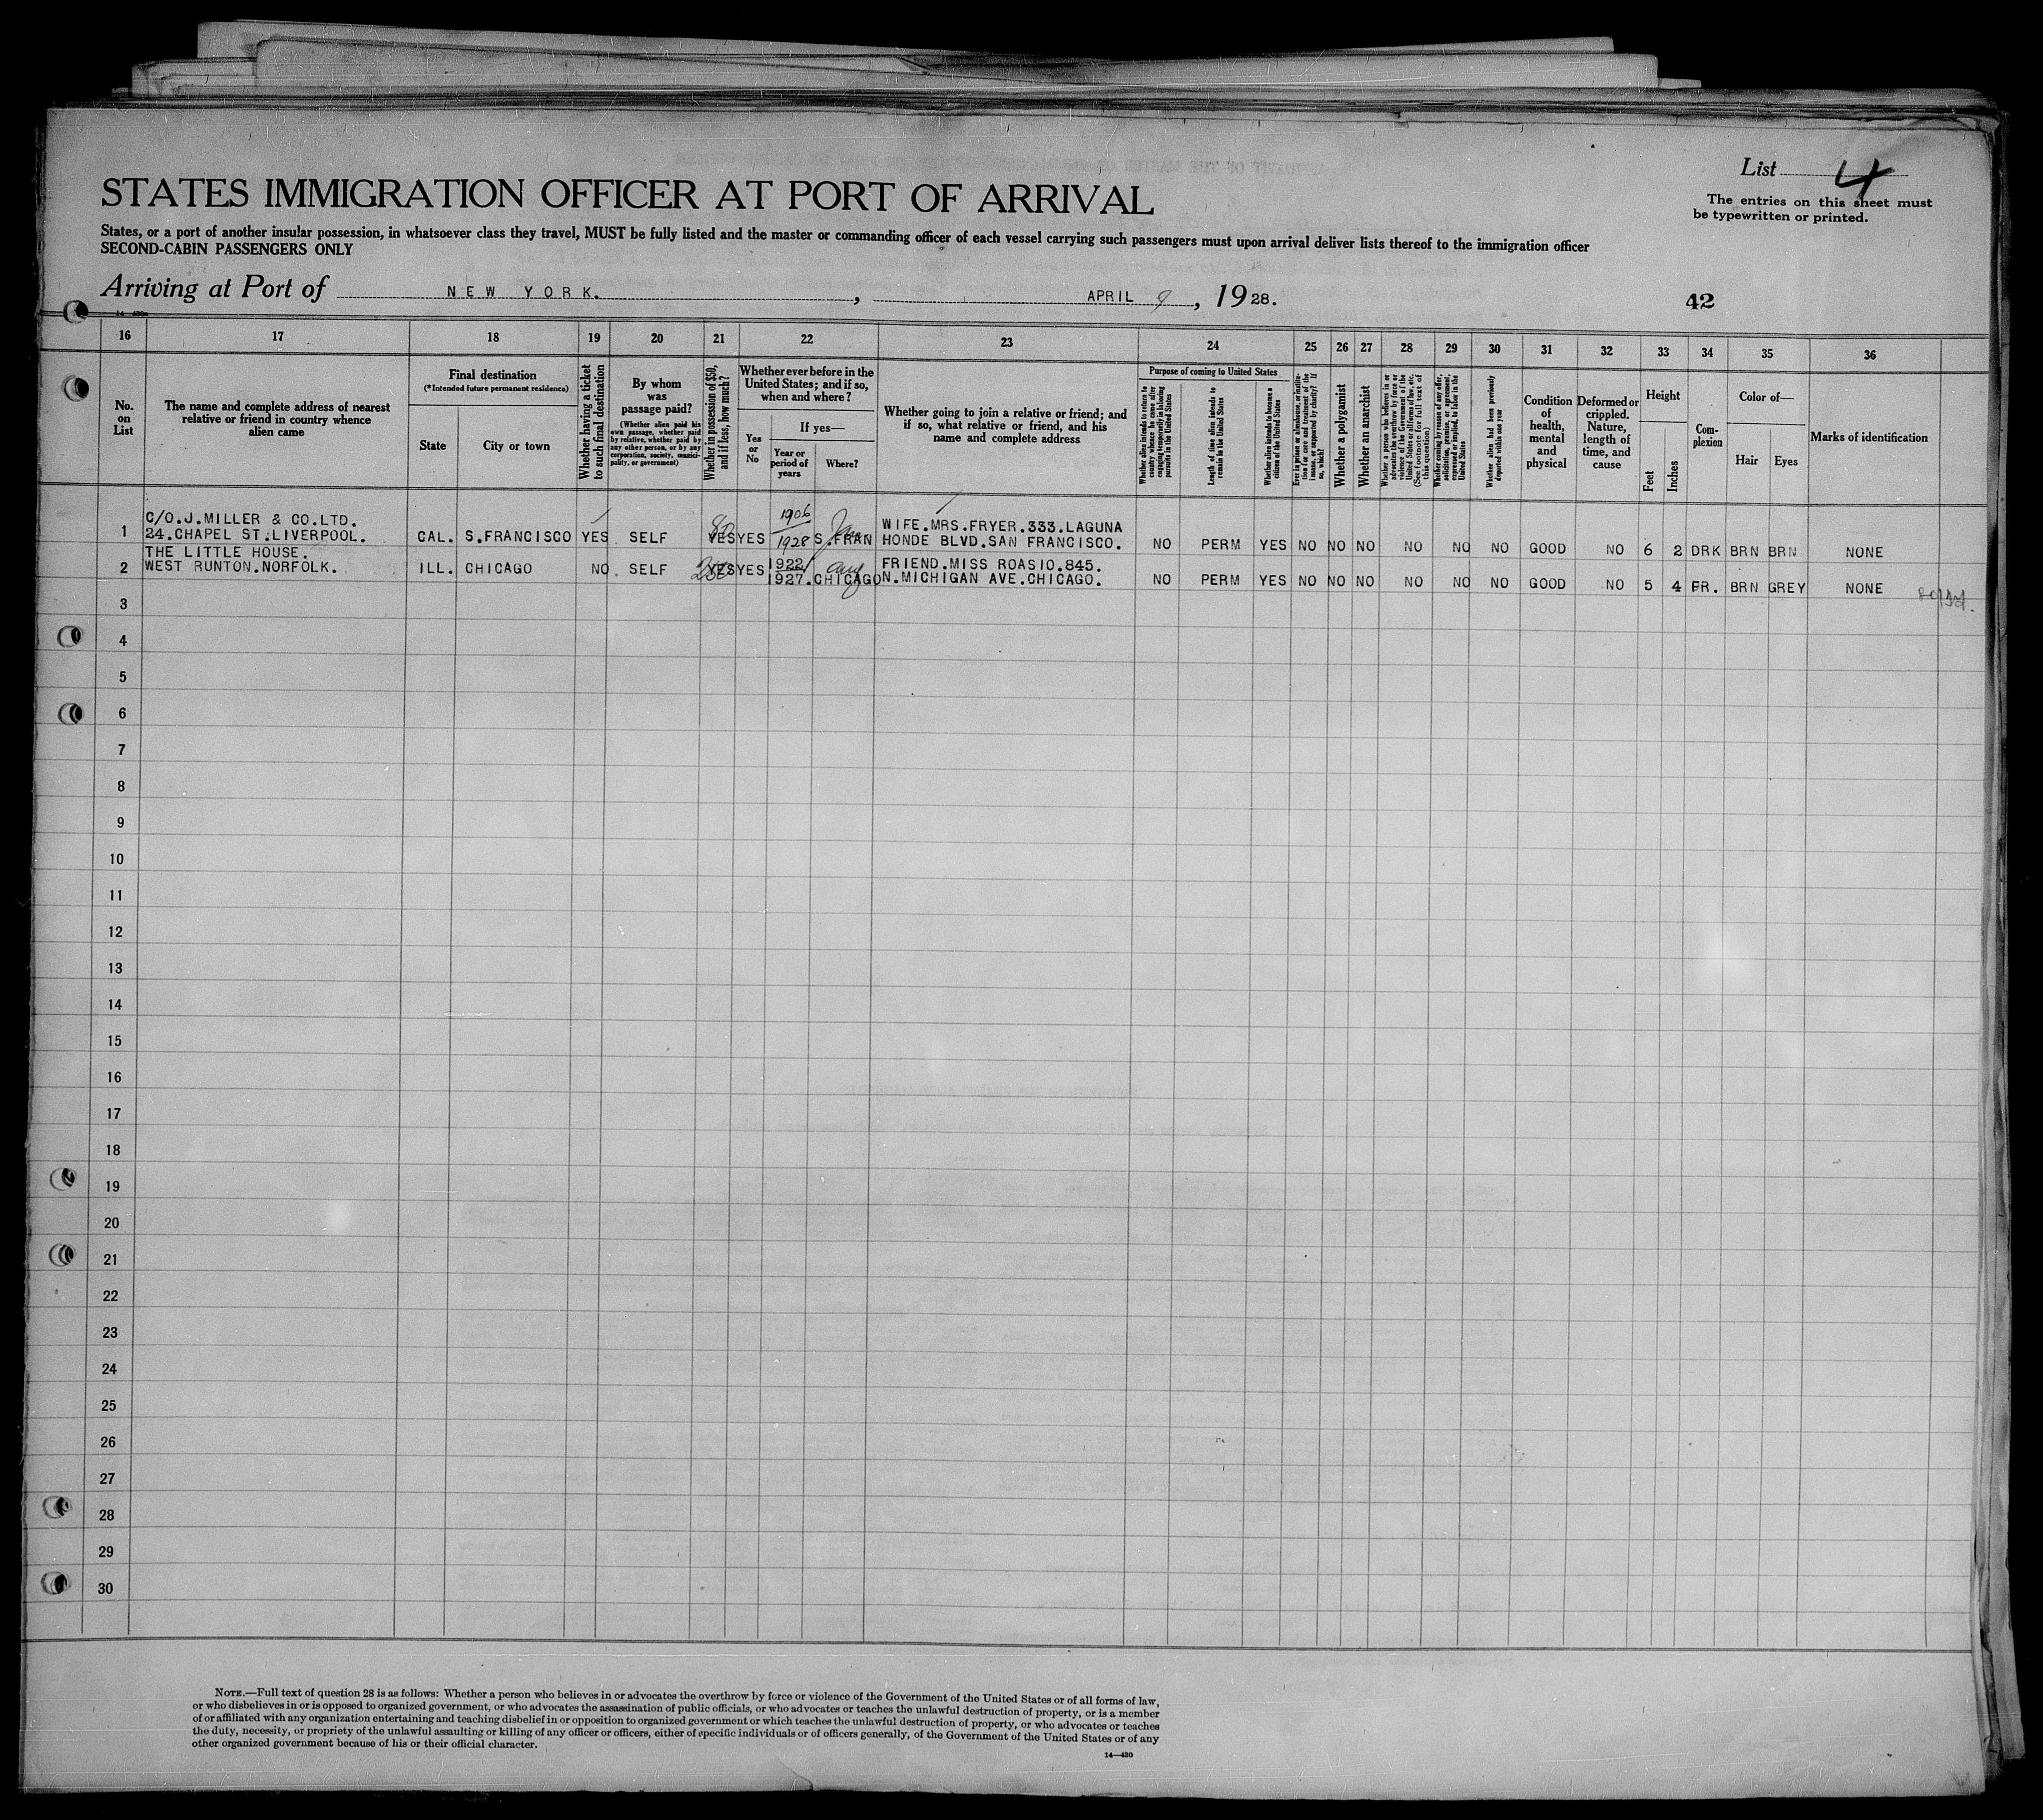 List 4
STATES IMMIGRATION OFFICER AT PORT OF ARRIVAL
The entries on this sheet must
be typewritten or printed.
States, or a port of another insular possession, in whatsoever class they travel, MUST be fully listed and the master or commanding officer of each vessel carrying such passengers must upon arrival deliver lists thereof to the immigration officer
SECOND-CABIN PASSENGERS ONLY
Arriving at Port of NEW YORK. , APRIL 9, 1928.
42
14-430
16 17 18 19 20 21 22 23 24 25 26 27 28 29 30 31 32 33 34 35 36
No. on List
The name and complete address of nearest relative or friend in country whence alien came
Final destination
(*Intended future permanent residence)
State
City or town
Whether having a ticket to such final destination
By whom was passage paid?
(Whether alien paid his own passage, whether paid by relative, whether paid by any other person, or by any corporation, society, municipality, or government)
Whether in possession of $50, and if less, how much?
Whether ever before in the United States; and if so, when and where?
Yes or No
If yes—
Year or period of years
Where?
Whether going to join a relative or friend; and if so, what relative or friend, and his name and complete address
Purpose of coming to United States
Whether alien intends to return to country whence he came after engaging temporarily in laboring pursuits in the United States
Length of time alien intends to remain in the United States
Whether alien intends to become a citizen of the United States
Ever in prison or almshouse, or institution for care and treatment of the insane, or supported by charity? If so, which?
Whether a polygamist
Whether an anarchist
Whether a person who believes in or advocates the overthrow by force or violence of the Government of the United States or all forms of law, etc. (See footnote for full text of this question)
Whether coming by reason of any offer, solicitation, promise, or agreement, expressed or implied, to labor in the United States
Whether alien had been previously deported within one year
Condition of health, mental and physical
Deformed or crippled. Nature, length of time, and cause
Height
Feet
Inches
Complexion
Color of—
Hair
Eyes
Marks of identification
1 C/O.J.MILLER & CO.LTD. 1906 WIFE.MRS.FRYER.333.LAGUNA
24.CHAPEL ST.LIVERPOOL. CAL. S.FRANCISCO YES SELF YES YES 1928 S.FRAN HONDE BLVD.SAN FRANCISCO. NO PERM YES NO NO NO NO NO NO GOOD NO 6 2 DRK BRN BRN NONE
2 THE LITTLE HOUSE. 1922 FRIEND.MISS ROASIO.845.
WEST RUNTON.NORFOLK. ILL. CHICAGO NO SELF YES YES 1927. CHICAGO N.MICHIGAN AVE.CHICAGO. NO PERM YES NO NO NO NO NO NO GOOD NO 5 4 FR. BRN GREY NONE
3
4
5
6
7
8
9
10
11
12
13
14
15
16
17
18
19
20
21
22
23
24
25
26
27
28
29
30
NOTE.—Full text of question 28 is as follows: Whether a person who believes in or advocates the overthrow by force or violence of the Government of the United States or of all forms of law,
or who disbelieves in or is opposed to organized government, or who advocates the assassination of public officials, or who advocates or teaches the unlawful destruction of property, or is a member
of or affiliated with any organization entertaining and teaching disbelief in or opposition to organized government or which teaches the unlawful destruction of property, or who advocates or teaches
the duty, necessity, or propriety of the unlawful assaulting or killing of any officer or officers, either of specific individuals or of officers generally, of the Government of the United States or of any
other organized government because of his or their official character.
14—430